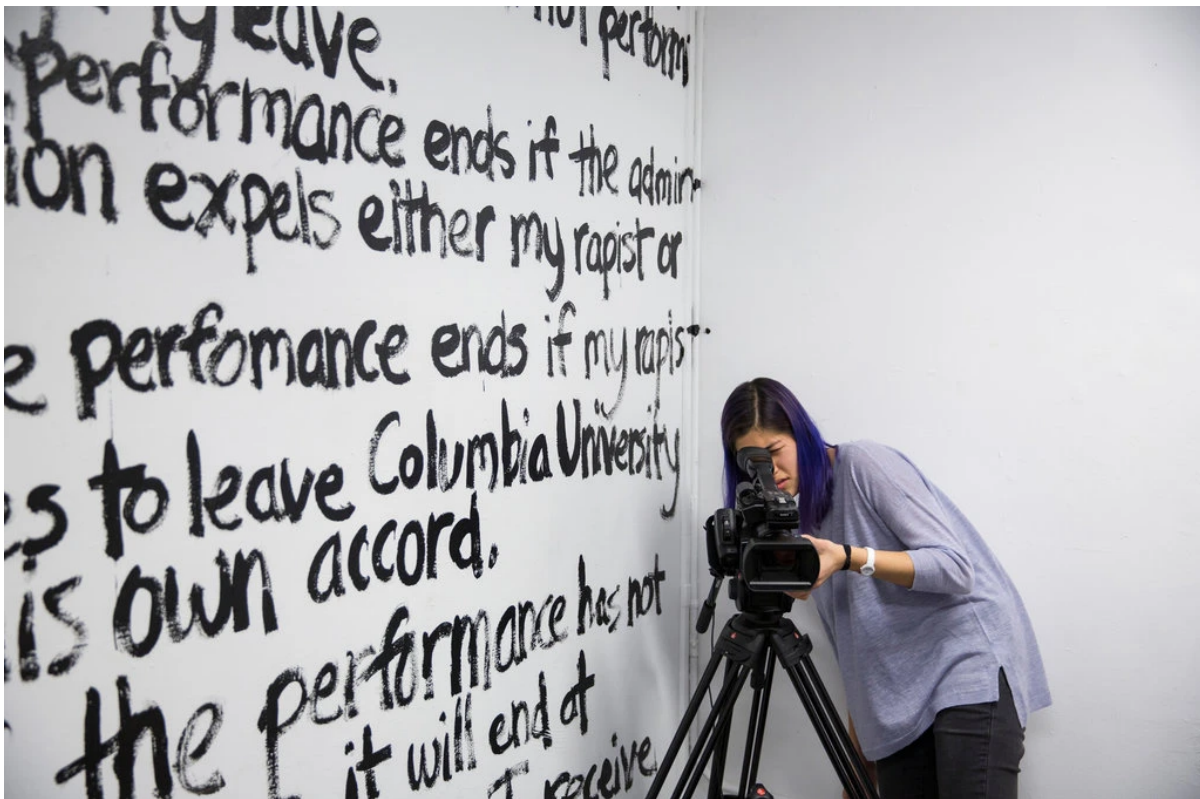 leave.
not performi
performance ends if the admin-
ion expels either my rapist or
e perfomance ends if my rapis-
s to leave Columbia University
is own accord.
the performance has not
it will end at
I receive